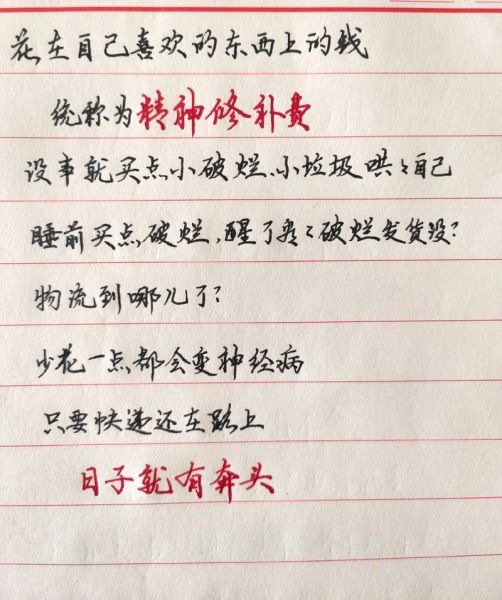 花在自己喜欢的东西上的钱
统称为精神修补费
没事就买点小破烂、小垃圾哄々自己
睡前买点破烂,醒了看々破烂发货没?
物流到哪儿了?
少花一点都会变神经病
只要快递还在路上
日子就有奔头